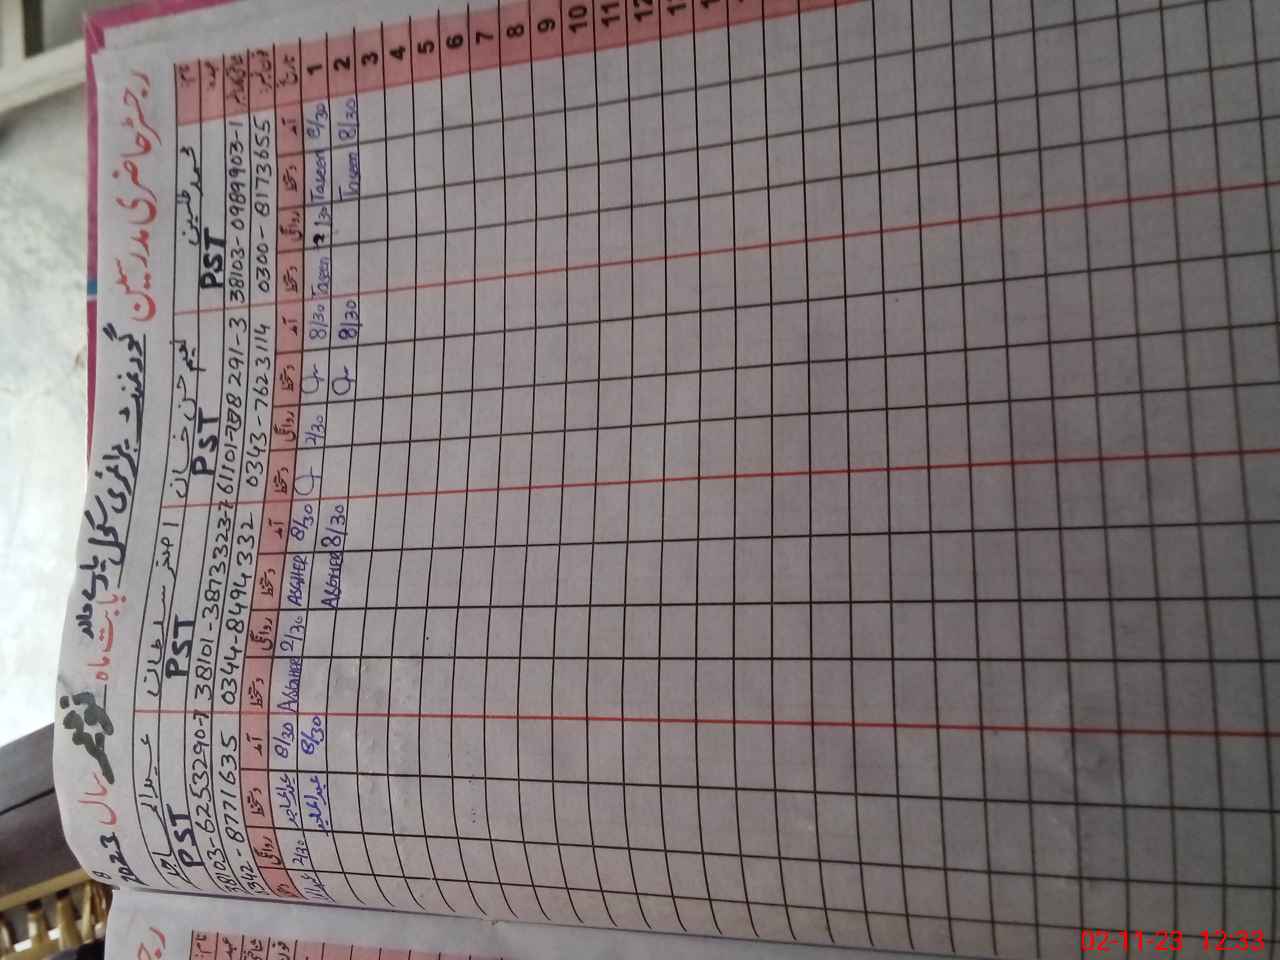 رجسٹر حاضری مدرسین گورنمنٹ پرائمری سکول بابت ماہ نومبر سال 2023
نام محمد طسین نعیم حسن خان اصغر سلطان عبدالساجد
عہدہ PST PST PST PST
38103-0989903-1 38101-3873323-7 38103-6253290-7
0300-8173655 0343-7623114 0344-8494332 0342-8771635
تاریخ آمد دستخط روانگی دستخط آمد دستخط روانگی دستخط آمد دستخط روانگی دستخط آمد دستخط روانگی
1 8/30 Taseen 2/30 Taseen 8/30 2/30 8/30 ASGHER 2/30 ASGHER 8/30 2/30
2 8/30 Taseen 8/30 8/30 ASGHER 8/30
3
4
5
6
7
8
9
10
11
12
02-11-23 12:33